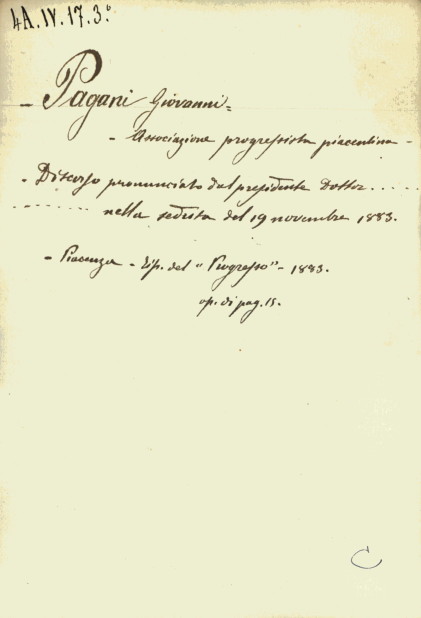 4A.IV.17.3.°
- Pagani Giovanni =
- Associazione progressista piacentina -
- Discorso pronunciato dal presidente Dottor ......
.......... nella seduta del 19 novembre 1883.
- Piacenza - Tip. del "Progresso" - 1883.
op. di pag. 15.
C